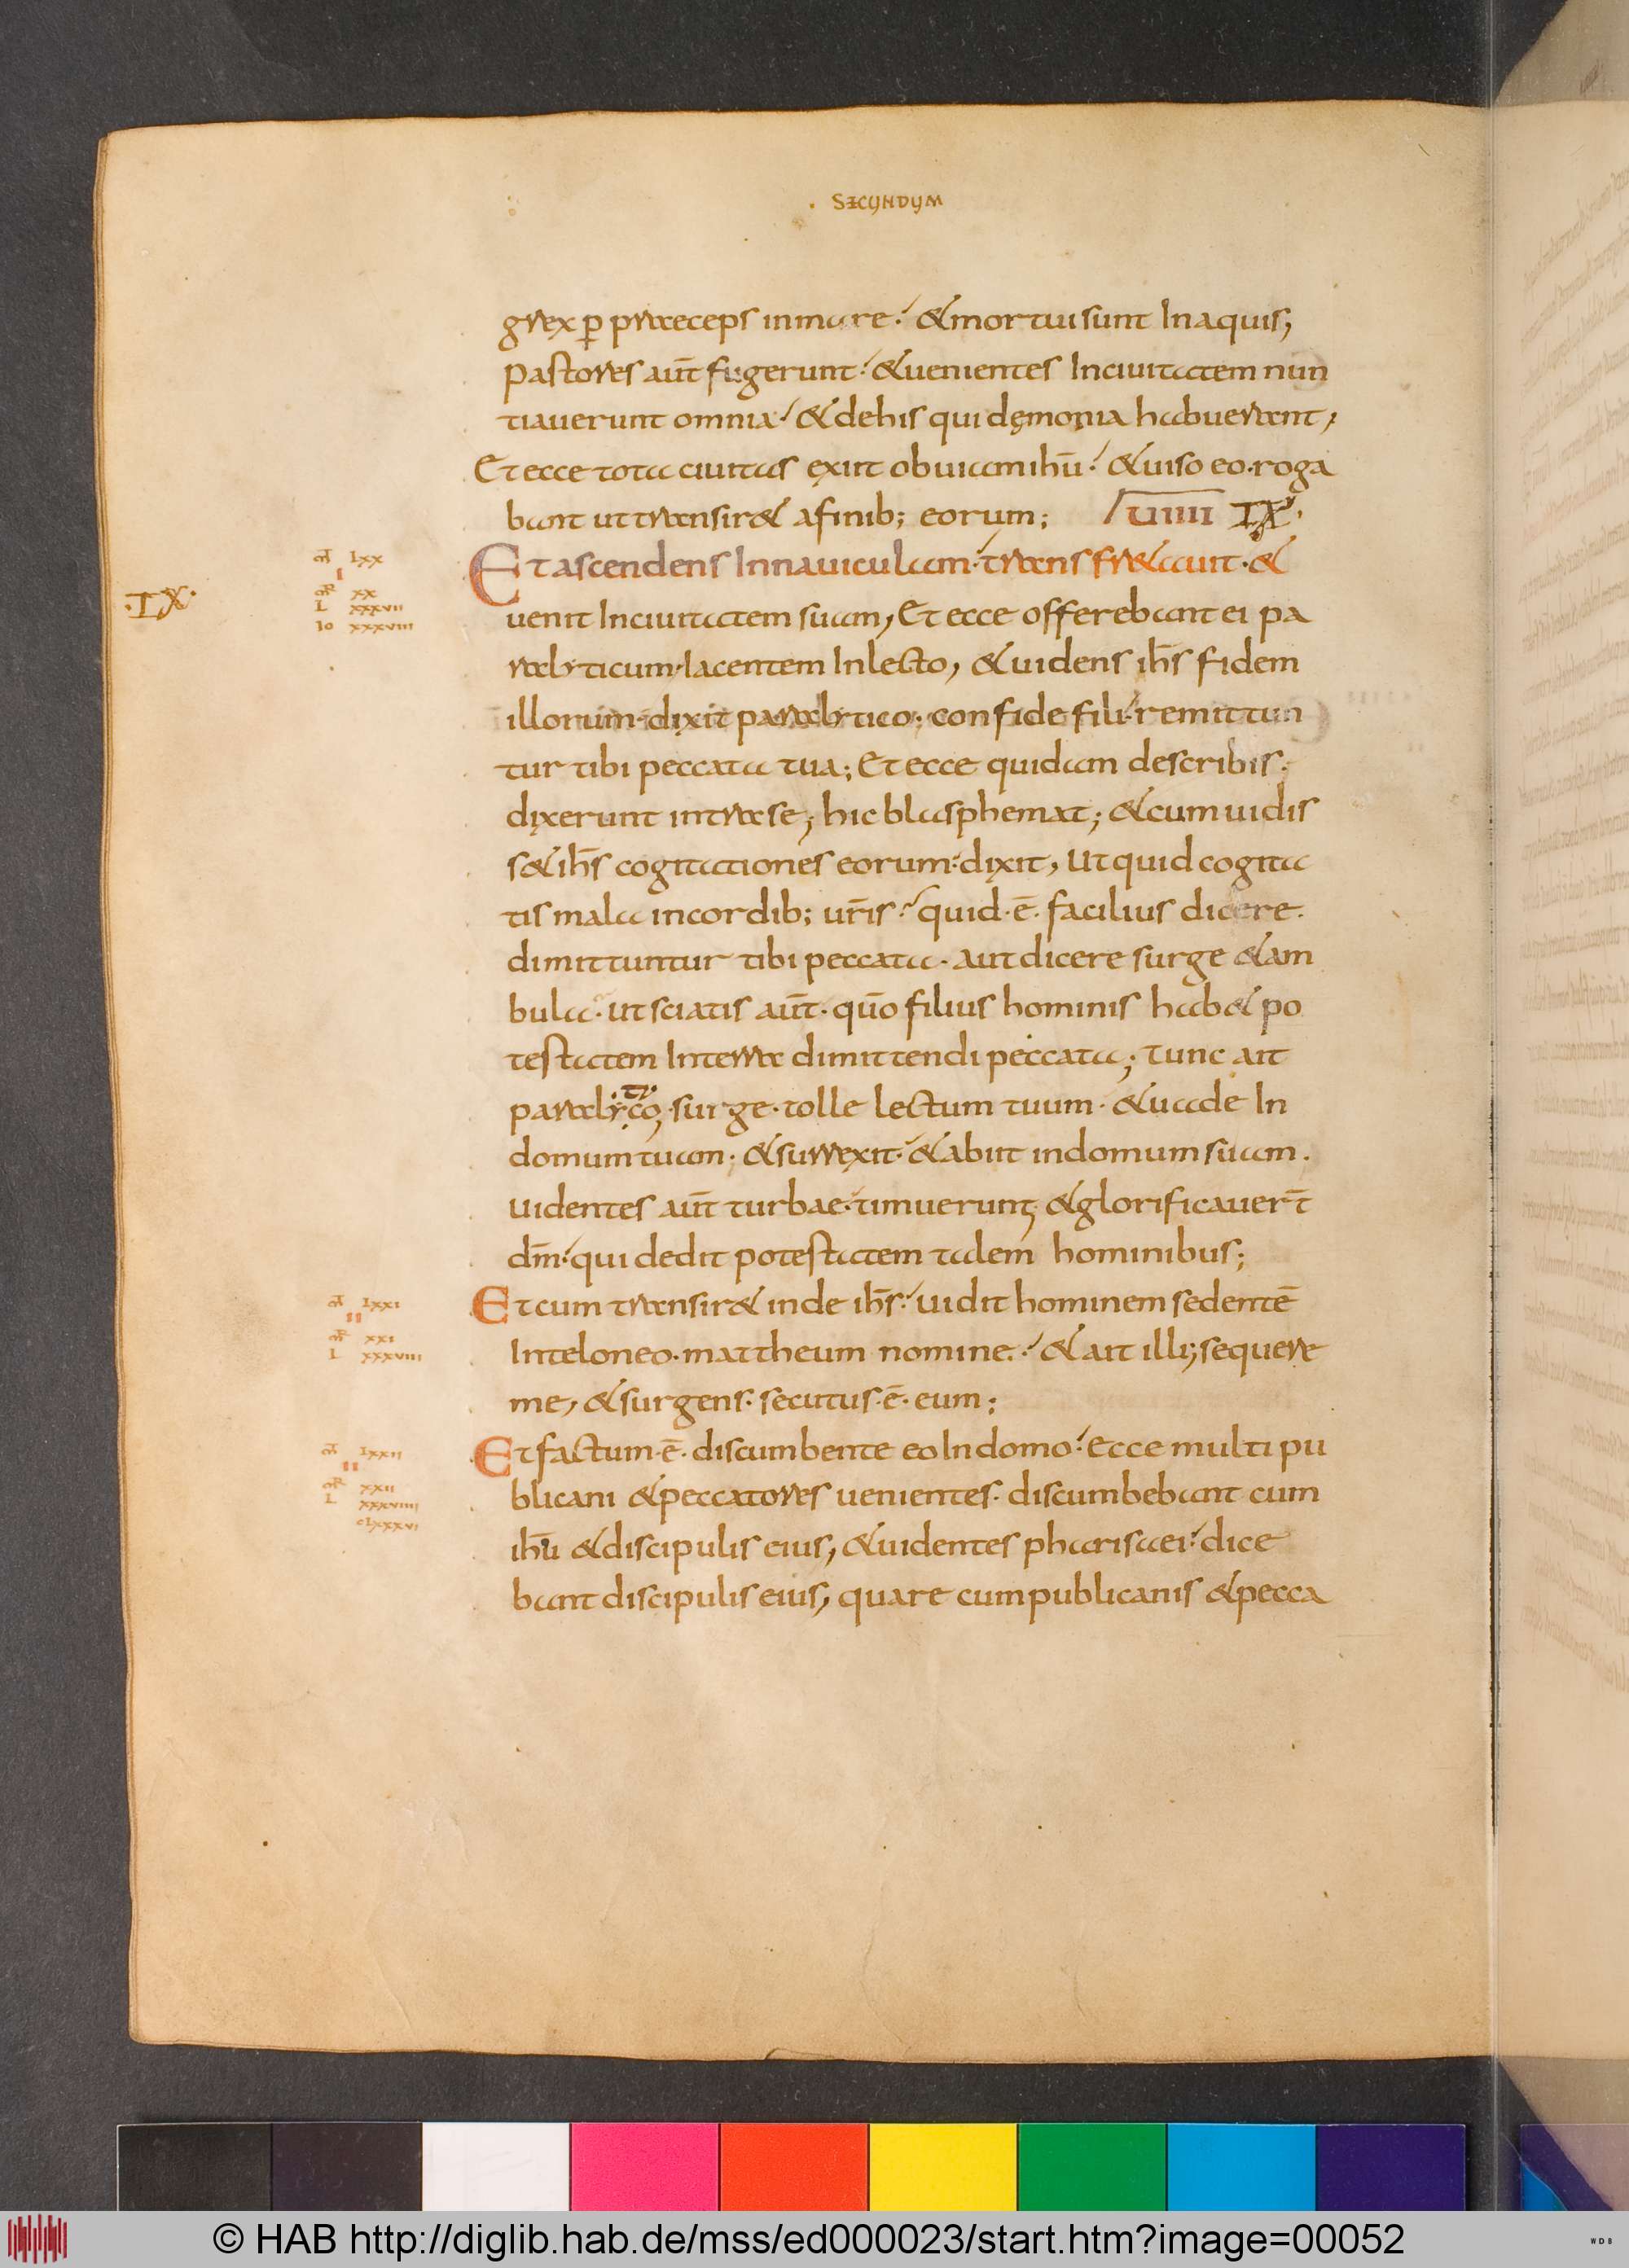 SECUNDUM
grex p̱ praeceps inmare. &mortuisunt Inaquis;
Pastores aut̄ fugerunt. &uenientes Inciuitatem nun
tiauerunt omnia. &dehis qui dęmonia habuerant,
Et ecce tota ciuitas exiit obuiamihū. &uiso eo. roga
bant ut transir& afinib; eorum; UIIII IX.
ɑ̄T lxx
I
Etascendens Innauiculam. transfr&auit. &
.IX.
MR xx
L xxxvii
Io xxxviii
uenit Inciuitatem suam, Et ecce offerebant ei pa
ralyticum. Iacentem Inlecto, &uidens ih̄s fidem
illorum. dixit paralytico. confide fili. remittun
tur tibi peccata tua; Et ecce quidam describis.
dixerunt intrase; hic blasphemat; &cum uidis
s& ih̄s cogitationes eorum. dixit, Ut quid cogita
tis mala incordib; ur̄is. quid. ē. facilius dicere.
dimittuntur tibi peccata. aut dicere surge &am
bula. ut sciatis aut̄. quō filius hominis hab& po
testatem Interra dimittendi peccata; Tunc ait
paralyco, surge. tolle lectum tuum. &uade In
ti
domumtuam. &surrexit. &abiit indomum suam.
Uidentes aut̄ turbae. timuerunt, &glorificauer̄t
dm̄. qui dedit potestatem talem hominibus;
ɑ̄T lxxi
II
MR xxi
L xxxviii
Et cum transir& inde ih̄s. uidit hominem sedentē
Inteloneo. mattheum nomine. &ait illi; sequere
me, &surgens. secutus. ē. eum;
ɑ̄T lxxii
II
MR xxii
L xxxviiii
clxxxvi
Et factum. ē. discumbente eo Indomo. Ecce multi pu
blicani &peccatores uenientes. discumbebant cum
ihū &discipulis eius, &uidentes pharisaei. dice
bant discipulis eius, quare cum publicanis &pecca
© HAB http://diglib.hab.de/mss/ed000023/start.htm?image=00052
WDB